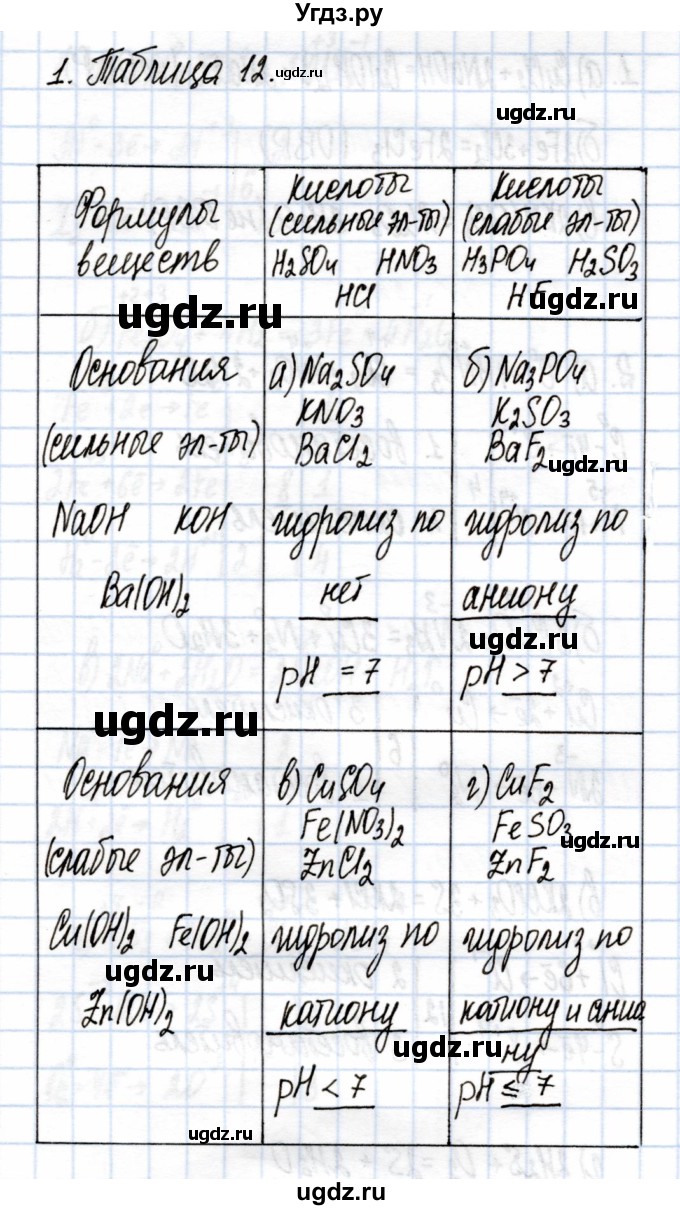 Угдз.ру
1. Таблица 12. ugdz.ru
ugdz.ru
Формулы
веществ
ugdz.ru
Кислоты
(сильные эл-ты)
H₂SO₄ HNO₃
HCl
Кислоты
(слабые эл-ты)
H₃PO₄ H₂SO₃
HF
ugdz.ru
Основания
(сильные эл-ты)
NaOH KOH
Ba(OH)₂
ugdz.ru
а) Na₂SO₄
KNO₃
BaCl₂
гидролиз по
нет
pH = 7
б) Na₃PO₄
K₂SO₃
BaF₂
ugdz.ru
гидролиз по
аниону
ugdz.ru
pH > 7
Основания
(слабые эл-ты)
Cu(OH)₂ Fe(OH)₂
ugdz.ru
Zn(OH)₂
в) CuSO₄
Fe(NO₃)₂
ZnCl₂
гидролиз по
катиону
pH < 7
ugdz.ru
г) CuF₂
FeSO₃
ugdz.ru
ZnF₂
гидролиз по
катиону и анио
ну
ugdz.ru
pH ≤ 7
ugdz.ru